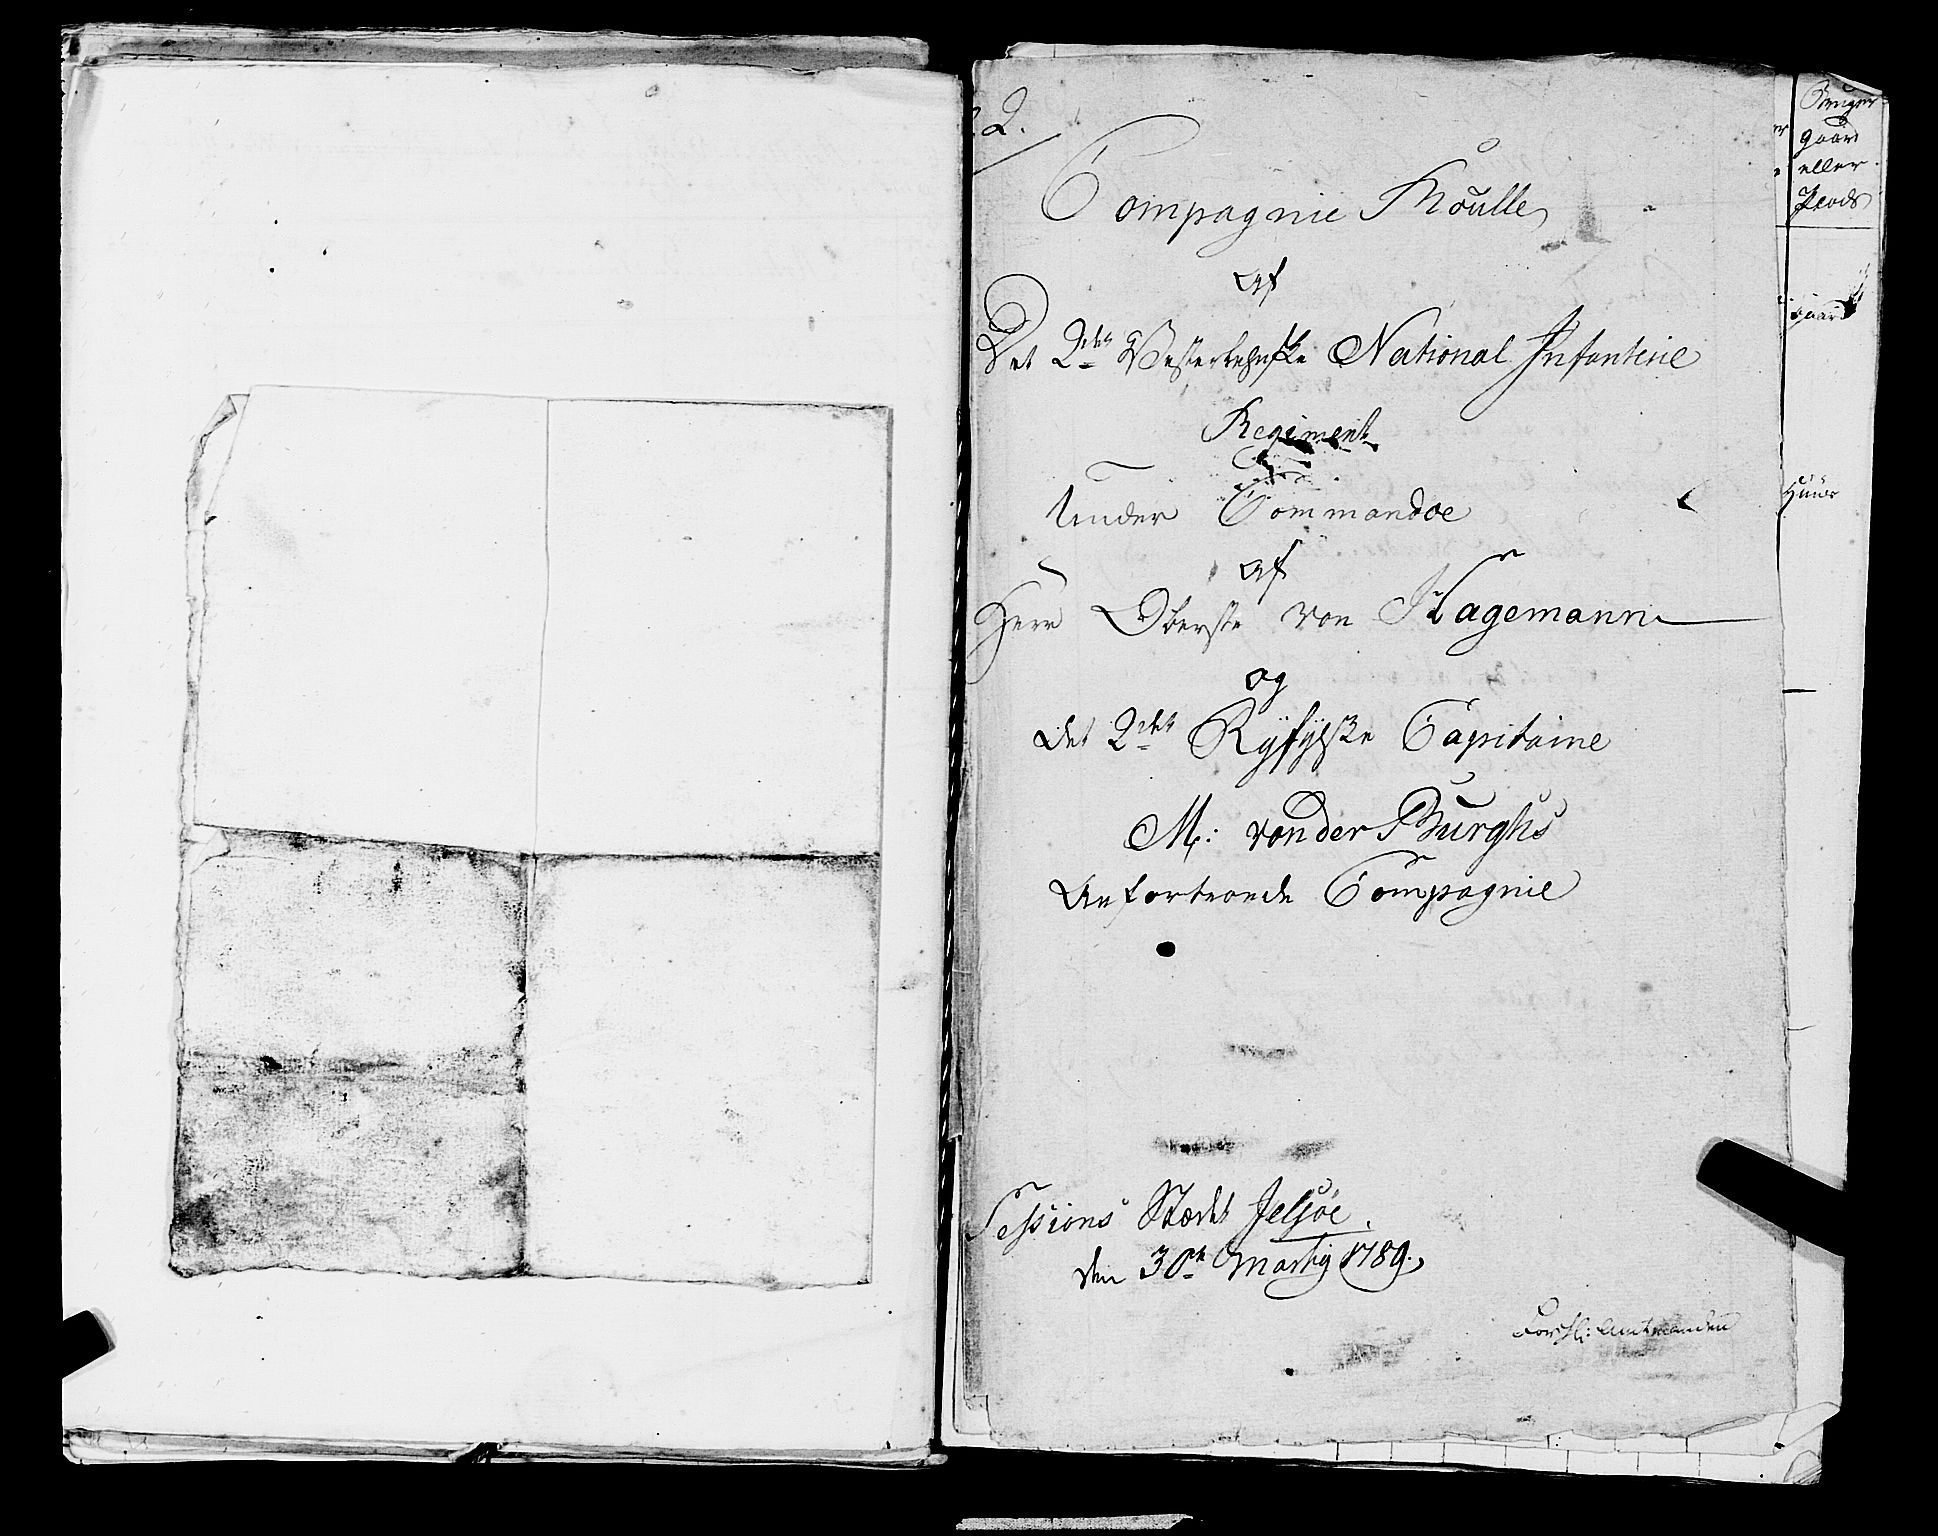 2.
Compagnie Roulle
af
Det 2det Vesterlehnske National Infanterie
Regiment
Under Commandoe
af
Herr Oberste von Hagemann
og
det 2det Ryfylske Capitaine
M: von der Burghs
Anfortroede Compagnie
Sessions Stædet Jelsöe.
den 30te Marty 1789.
For Hl: Amtmanden
Bruger
gaard
eller
Plads
gaard
Huus